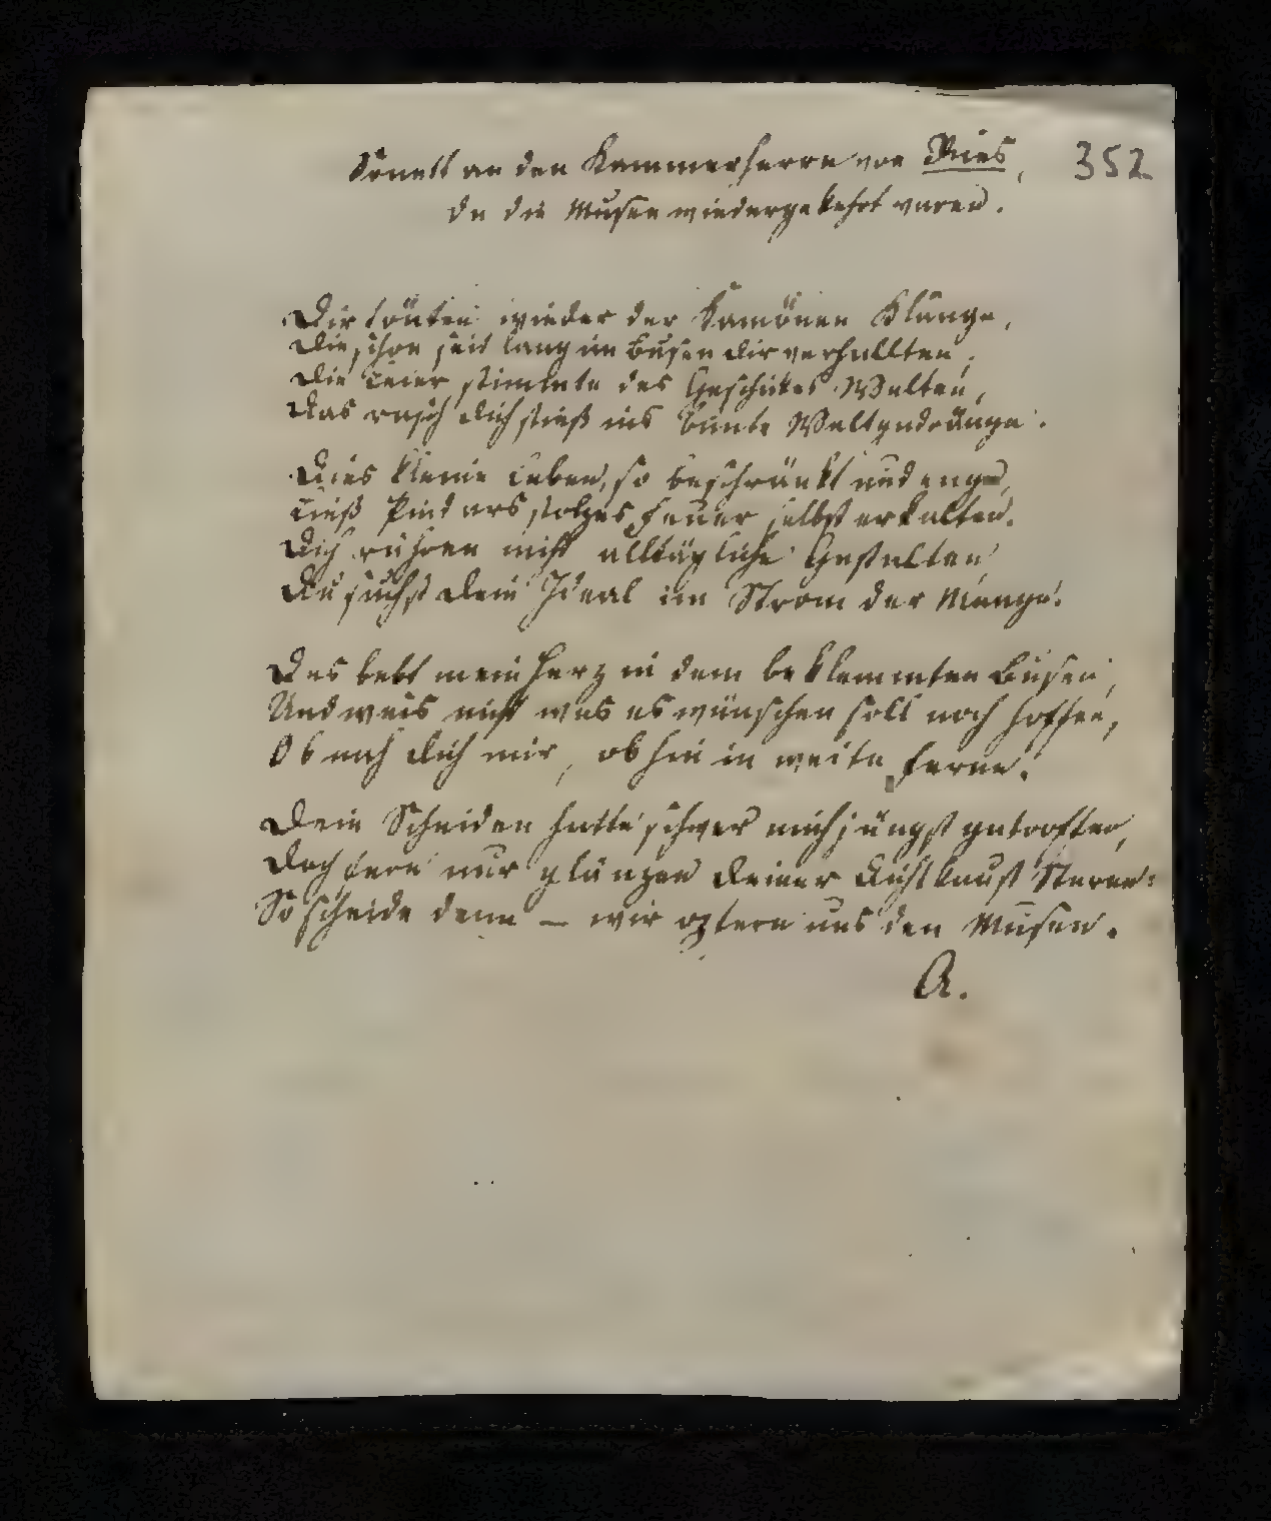 Sonett an den Kammerherrn von Ries, 352
da die Musen wiedergekehrt waren.
Dir tönten wieder der Kamönen Klänge,
Die schon seit lang im Busen dir verhallten,
Die Leier stimmte des Geschickes Walten,
Das rasch dich stieß ins bunte Weltgedränge.
Dies kleine Leben, so beschränkt und enge,
Ließ Pindars stolzes Feuer selbst erkalten.
Dich rühren nicht alltägliche Gestalten
Du suchst dein Ideal im Strom der Menge.
Das bebt mein Herz in dem beklemmten Busen,
Und weis nicht was es wünschen soll noch hoffen,
Ob nah dich mir, ob hin in weite Ferne.
Dein Scheiden hatte schwer mich jüngst getroffen,
Doch fern nur glänzen deiner Dichtkunst Sterne:
So scheide denn — wir opfern uns den Musen.
A.